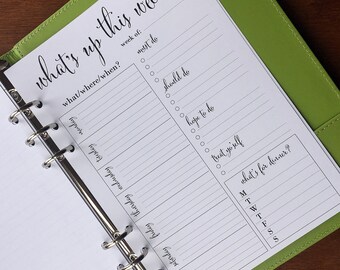 what's up this we
week of:
what/where/when?
must do
should do
hope to do
treat yo'self
monday
tuesday
wednesday
thursday
friday
saturday
what's for dinner?
M
T
W
T
F
S
S